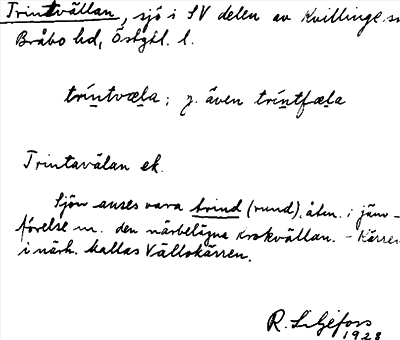 Trintvällan, sjö i SV delen av Kvillinge sn
Bråbo hd, Östgtl. l.
tríntvæla; y. även tríntfæla
Trintavälan ek.
Sjön anses vara trind (rund), åtm. i jäm-
förelse m. den närbelägna Krokvällan. - Kärren
i närh. kallas Vällokärren.
R. Liljefors
1928